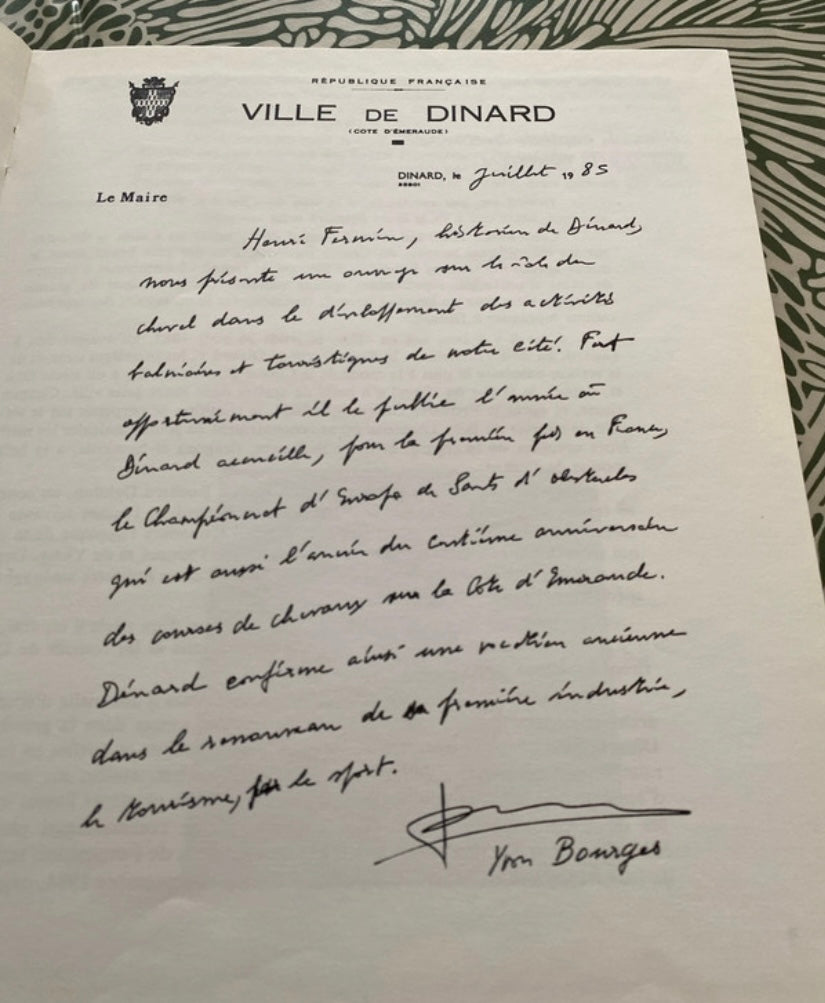 RÉPUBLIQUE FRANÇAISE
VILLE DE DINARD
(COTE D'ÉMERAUDE)
DINARD, le Juillet 1985
Le Maire
Henri Fermin, historien de Dinard,
nous présente un ouvrage sur le rôle du
cheval dans le développement des activités
balnéaires et touristiques de notre cité. Fort
opportunément il le publie l'année où
Dinard accueille, pour la première fois en France,
le Championnat d'Europe de Sauts d'obstacles
qui est aussi l'année du centième anniversaire
des courses de chevaux sur la Côte d'Emeraude.
Dinard confirme ainsi une vocation ancienne
dans le renouveau de sa première industrie,
le tourisme, par le sport.
Yvon Bourges